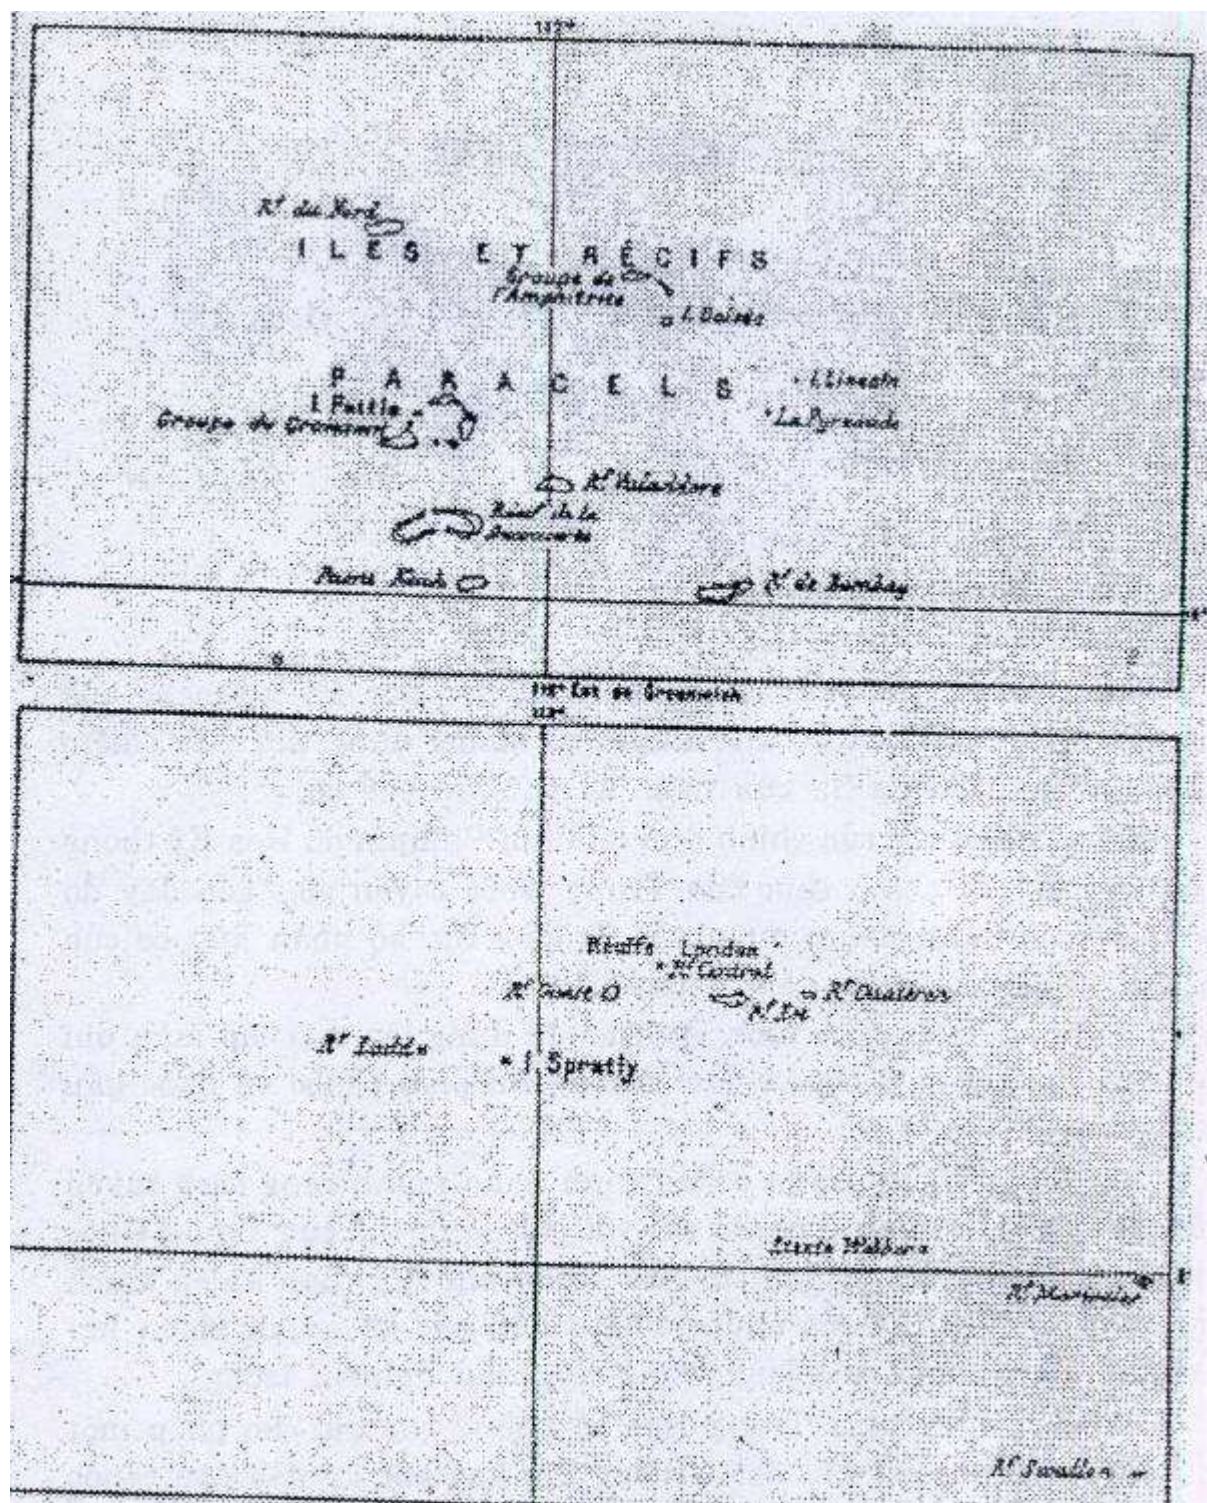 112°
Rf du Nord
ILES ET RÉCIFS
Groupe de
l'Amphitrite
I. Boisée
PARACELS
I. Lincoln
I. Pattle
Groupe du Croissant
La Pyramide
Rf Vuladdore
Récif de la
Découverte
Passu Keah
Rf de Bombay
112° Est de Greenwich
Récifs London
Rf Central
Rf Ouest
Rf Cuateron
Rf Est
Rf Ladd
I. Spratly
Rf Swallow